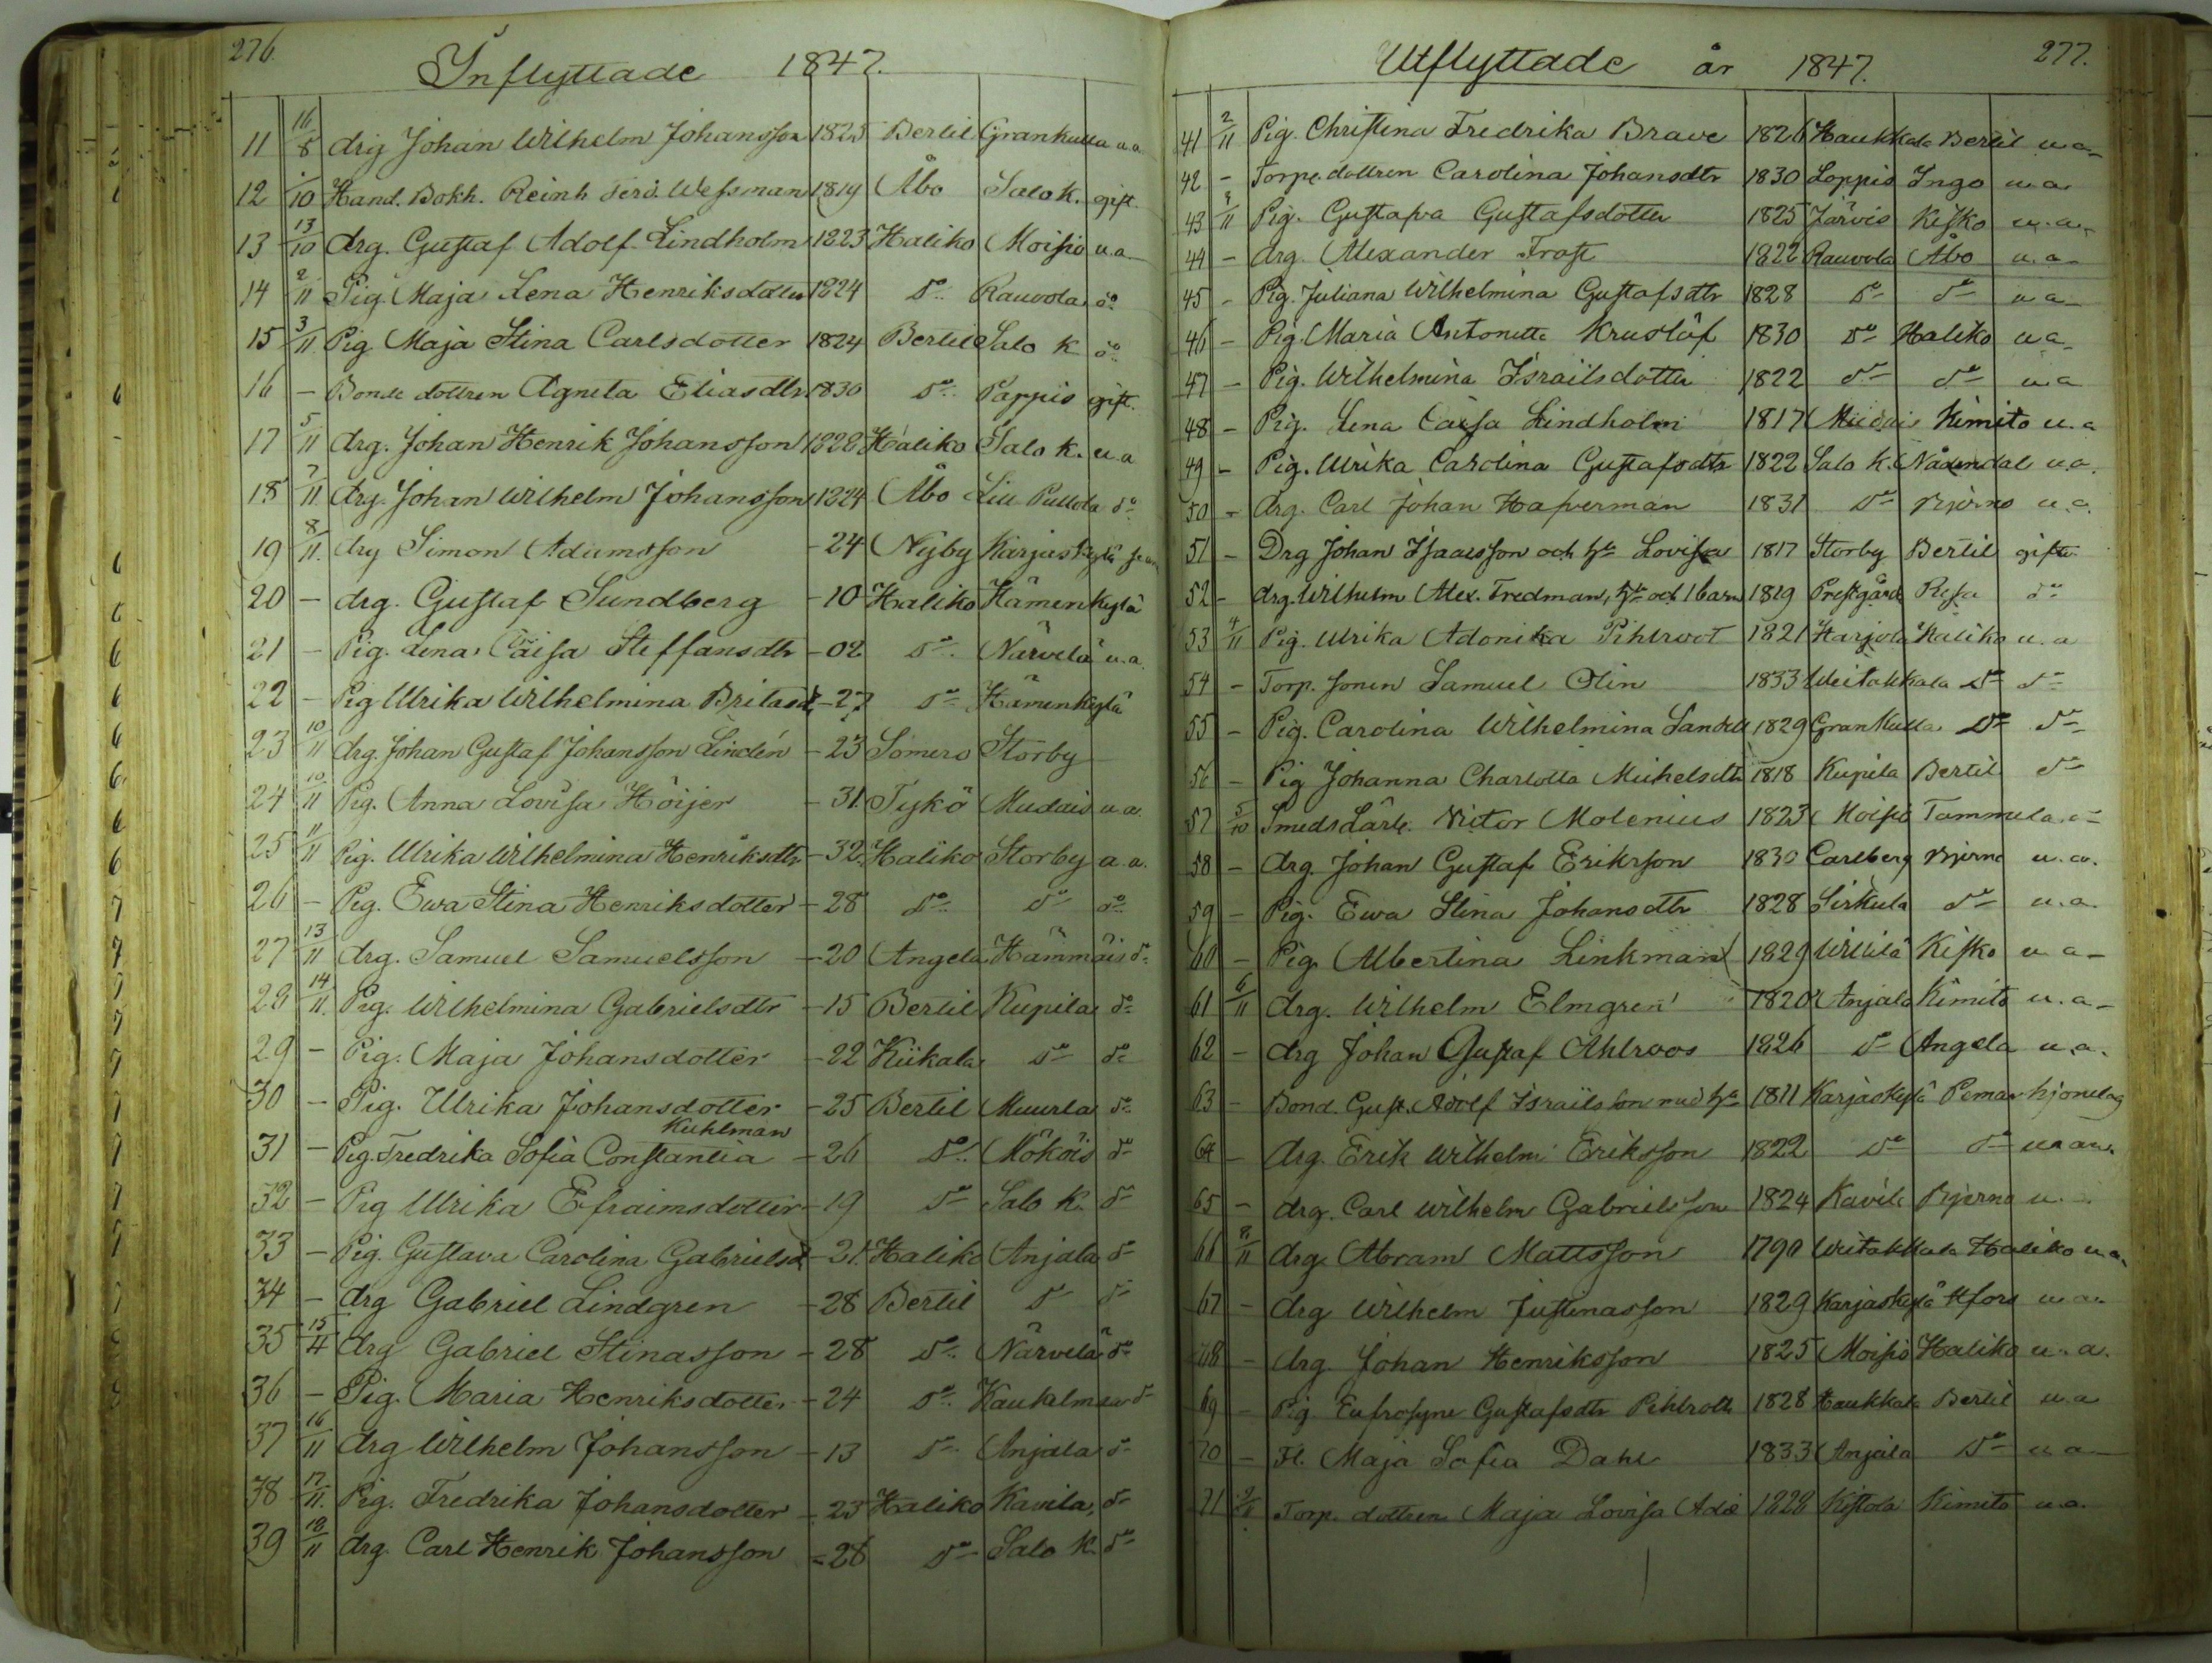 276.
Inflyttade 1847.
11 16/8 drg Johan Wilhelm Johansson 1825 Bertil Grankulla u.a.
12 /10 Hand. Bokh. Reinh Ferd. Wessman 1819 Åbo Salo K. gift.
13 13/10 drg. Gustaf Adolf Lindholm 1823 Haliko Moisio u.a.
14 2/11 Pig. Maja Lena Henriksdotter 1824 do Rauvola do
15 3/11 Pig Maja Stina Carlsdotter 1824 Bertil Salo K do
16 – Bonde dottren Agneta Eliasdtr. 1830 do Pappis gift.
17 5/11 drg. Johan Henrik Johansson 1828 Haliko Salo K. u.a
18 7/11 drg. Johan Wilhelm Johansson 1824 Åbo Lill Pullola do
19 8/11. drg Simon Adamsson -24 Nyby Karjaskylä
20 – drg. Gustaf Sundberg -10 Haliko Hämenkylä
21 – Pig. Lena Caisa Steffansdtr -02 do Närvelä u.a.
22 – Pig Ulrika Wilhelmina Britasd. -27 do Hämenkylä
23 10/11 drg. Johan Gustaf Johansson Lindén -23 Somero Storby
24 10/11 Pig. Anna Lovisa Höijer -31. Tykö Mudais u.a.
25 11/11 Pig. Ulrika Wilhelmina Henriksdtr -32. Haliko Storby a.a.
26 – Pig. Ewa Stina Henriksdotter -28 do do do
27 13/11 drg. Samuel Samuelsson -20 Angela Hämmäis do
28 14/11. Pig. Wilhelmina Gabrielsdtr -15 Bertil Kupila do
29 – Pig. Maja Johansdotter -22 Kiikala do do
30 – Pig. Ulrika Johansdotter -25 Bertil Muurla do
Kuhlman
31 – Pig. Fredrika Sofia Constantia -26 do Mököis do
32 – Pig Ulrika Efraimsdotter -19 do Salo K. do
33 – Pig. Gustava Carolina Gabrielsd -21. Haliko Anjala do
34 – drg Gabriel Lindgren -28 Bertil do do
35 15/11 drg Gabriel Stinasson -28 do Närvelä do
36 – Pig. Maria Henriksdotter -24 do Kaukelmaa do
37 16/11 drg Wilhelm Johansson -13 do Anjala do
38 17/11. Pig. Fredrika Johansdotter -23 Haliko Kavila, do
39 18/11 drg. Carl Henrik Johansson -28 do Salo K. do
277.
Utflyttade år 1847.
41 2/11 Pig. Christina Fredrika Brave 1826 Haukkala Bertil u.a.
42 – Torpe.dottren Carolina Johansdtr 1830 Loppis Ingo u.a.
43 /11 Pig. Gustafva Gustafsdotter 1825 Järvis Kisko u.a.
44 – drg. Alexander Frost 1822 Rauvola Åbo u.a.
45 – Pig. Juliana Wilhelmina Gustafsdtr 1828 do do u a
46 – Pig. Maria Antonette Kruslöf 1830 do Haliko u a
47 – Pig. Wilhelmina Israilsdotter 1822 do do u.a
48 – Pig. Lena Caisa Lindholm 1817 Mudais Kimito u.a
49 – Pig. Ulrika Carolina Gustafsdtr 1822 Salo K. Nådendal u.a.
50 – drg. Carl Johan Hafverman 1831 do Bjerno u.a.
51 – Drg Johan Isaacsson och hu Lovisa 1817 Storby Bertil gifta.
52 – drg. Wilhelm Alex. Fredman, hu och 1 barn 1819 Prestgård Resa do
53 4/11 Pig. Ulrika Adonika Pihlroot 1821 Harjola Haliko u.a
54 – Torp. sonen Samuel Olin 1833 Weitakkala do do
55 – Pig. Carolina Wilhelmina Sandell 1829 Grankulla do do
56 – Pig Johanna Charlotta Mickelsdtr 1818 Kupila Bertil do
57 5/10 Smeds Lärl. Victor Molenius 1823 Moisio Tammela. do
58 – drg. Johan Gustaf Eriksson 1830 Carlberg Bjerno u.a.
59 – Pig. Ewa Stina Johansdtr 1828 Sirkula do u.a.
60 – Pig. Albertina Linkman 1829 Willilä Kisko u a
61 6/11 drg. Wilhelm Elmgren 1820 Anjala Kimito u.a
62 – drg Johan Gustaf Ahlroos 1826 do Angela u.a.
63 – Bond. Gust. Adolf Israilsson med hu 1811 Karjaskylä Pemar hjonelag
64 – drg. Erik Wilhelm Eriksson 1822 do do
65 – drg. Carl Wilhelm Gabrielsson 1824 Kavila Bjerno u.
66 8/11 drg. Abram Mattsson 1790 Weitakkala Haliko u a.
67 – drg Wilhelm Justinasson 1829 Karjaskylä Hfors u.a.
68 – drg. Johan Henriksson 1825 Moisio Haliko u.a.
69 – Pig. Eufrosyne Gustafsdtr Pihlroth 1828 Haukkala Bertil u.a
70 – Fl. Maja Sofia Dahl 1833 Anjala do u a
71 Torp. dottren Maja Lovisa 1828 Kistola Kimito u.a.